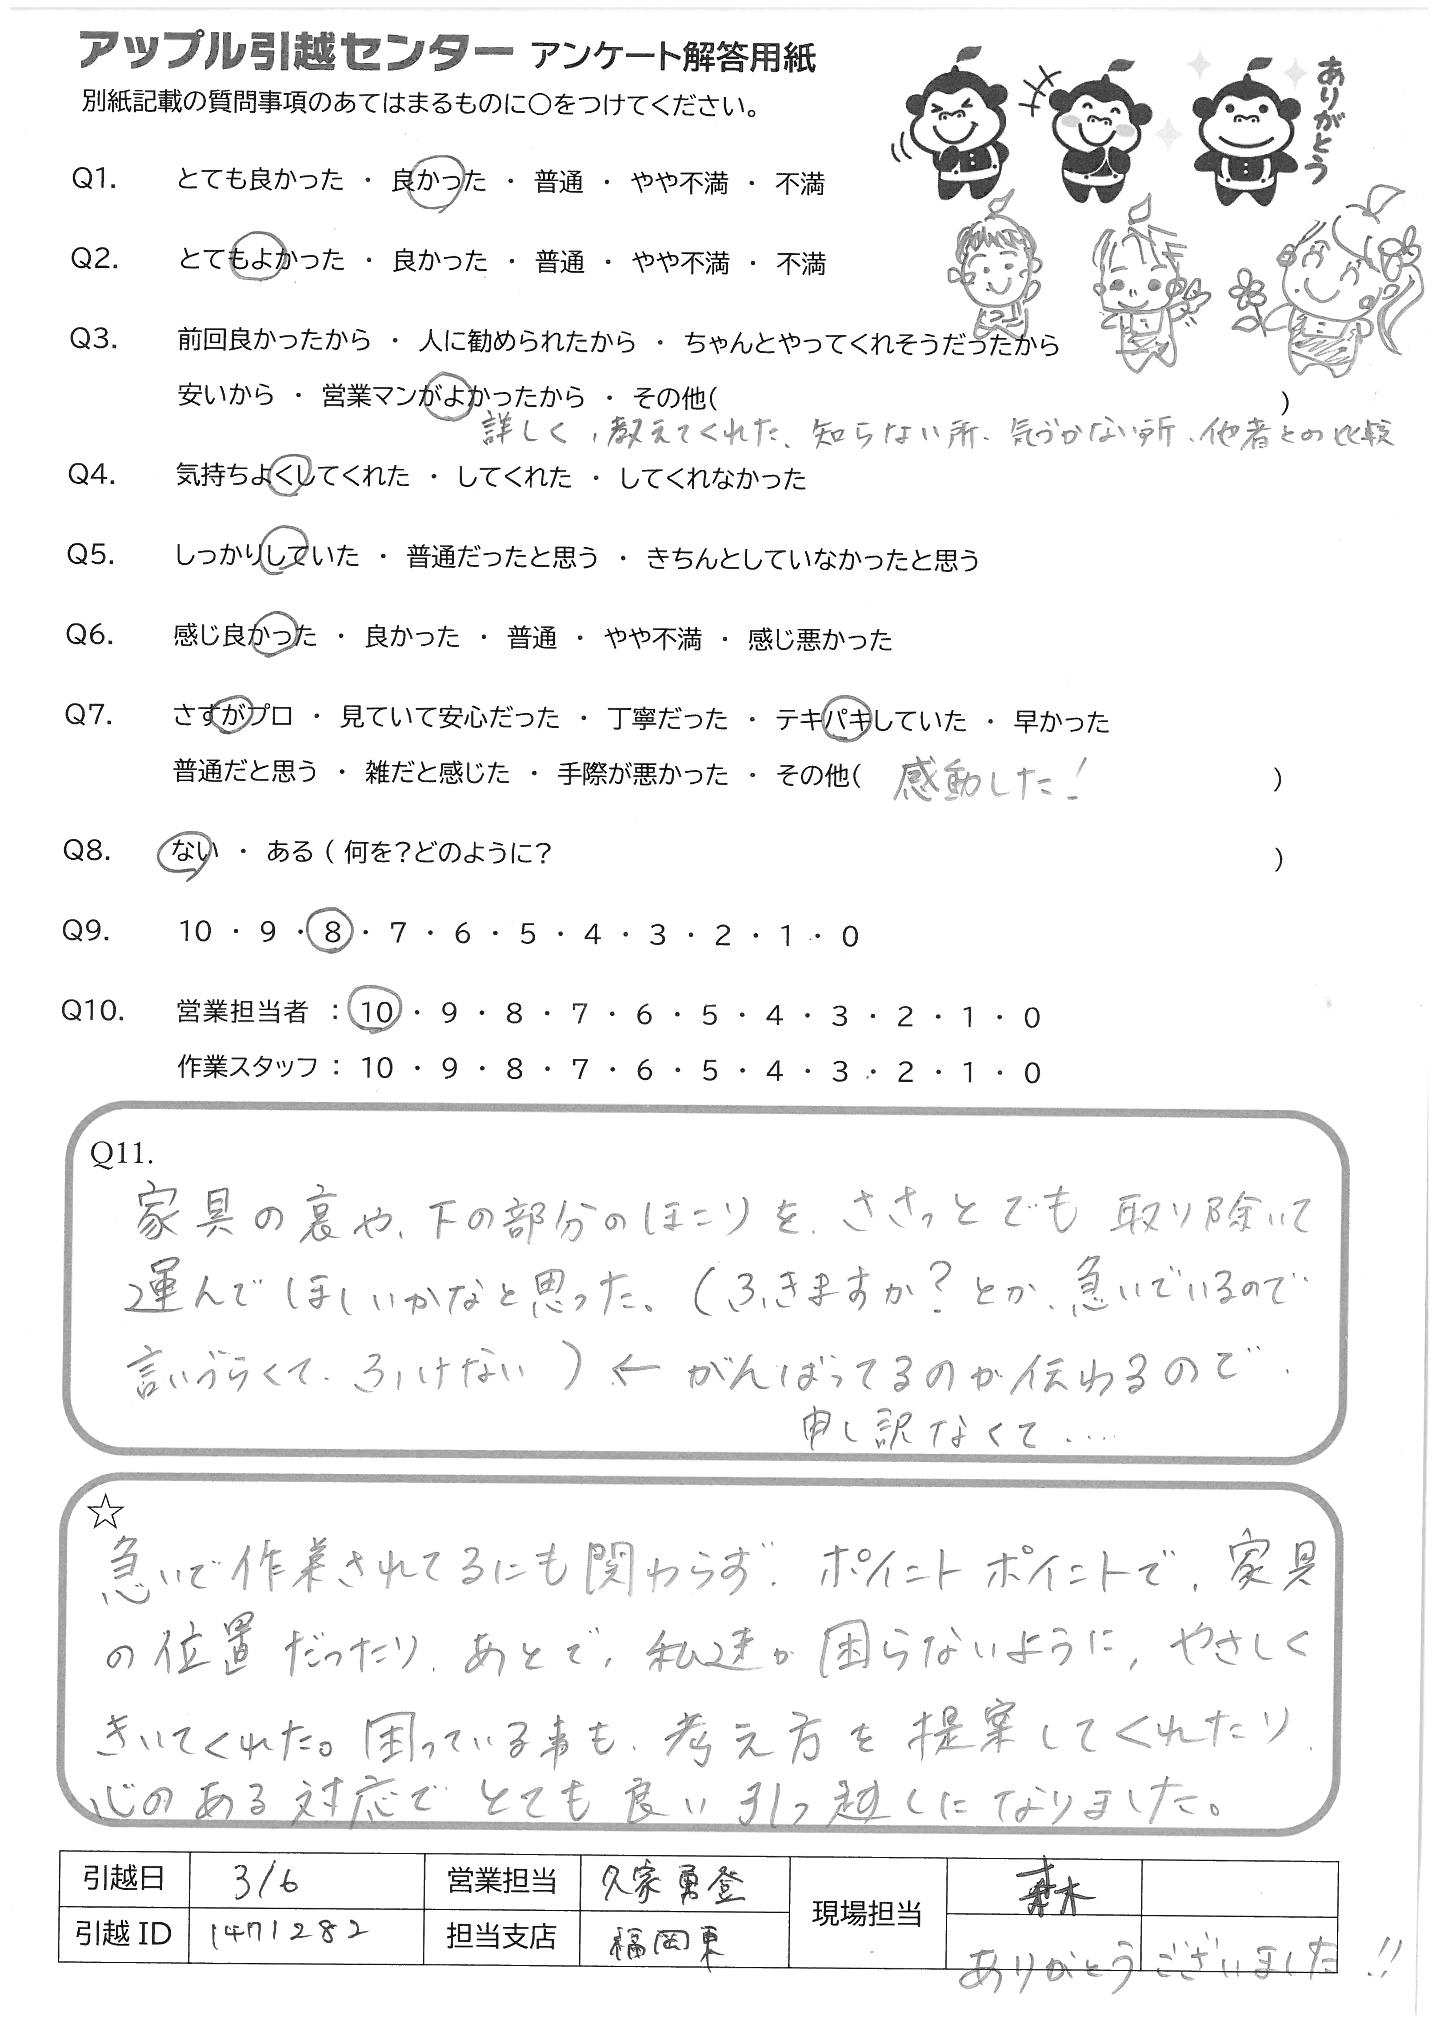 アップル引越センター アンケート解答用紙
別紙記載の質問事項のあてはまるものに〇をつけてください。
ありがとう
Q1. とても良かった ・ 良かった ・ 普通 ・ やや不満 ・ 不満
Q2. とてもよかった ・ 良かった ・ 普通 ・ やや不満 ・ 不満
Q3. 前回良かったから ・ 人に勧められたから ・ ちゃんとやってくれそうだったから
安いから ・ 営業マンがよかったから ・ その他( )
詳しく、教えてくれた、知らない所、気づかない所、他者との比較
Q4. 気持ちよくしてくれた ・ してくれた ・ してくれなかった
Q5. しっかりしていた ・ 普通だったと思う ・ きちんとしていなかったと思う
Q6. 感じ良かった ・ 良かった ・ 普通 ・ やや不満 ・ 感じ悪かった
Q7. さすがプロ ・ 見ていて安心だった ・ 丁寧だった ・ テキパキしていた ・ 早かった
普通だと思う ・ 雑だと感じた ・ 手際が悪かった ・ その他( 感動した! )
Q8. ない ・ ある ( 何を?どのように? )
Q9. 10 ・ 9 ・ 8 ・ 7 ・ 6 ・ 5 ・ 4 ・ 3 ・ 2 ・ 1 ・ 0
Q10. 営業担当者 : 10 ・ 9 ・ 8 ・ 7 ・ 6 ・ 5 ・ 4 ・ 3 ・ 2 ・ 1 ・ 0
作業スタッフ : 10 ・ 9 ・ 8 ・ 7 ・ 6 ・ 5 ・ 4 ・ 3 ・ 2 ・ 1 ・ 0
Q11.
家具の裏や、下の部分のほこりを、ささっとでも取り除いて
運んでほしいかなと思った。(ふきますか?とか、急いでいるので
言いづらくて、ふけない)←がんばってるのが伝わるので、
申し訳なくて....
☆
急いで作業されてるにも関わらず、ポイントポイントで、家具
の位置だったり、あとで、私達が困らないように、やさしく
きいてくれた。困っている事も、考え方を提案してくれたり、
心のある対応でとても良い引っ越しになりました。
引越日 3/6 営業担当 久家勇登 現場担当
引越ID 1471282 担当支店 福岡東
ありがとうございました!!